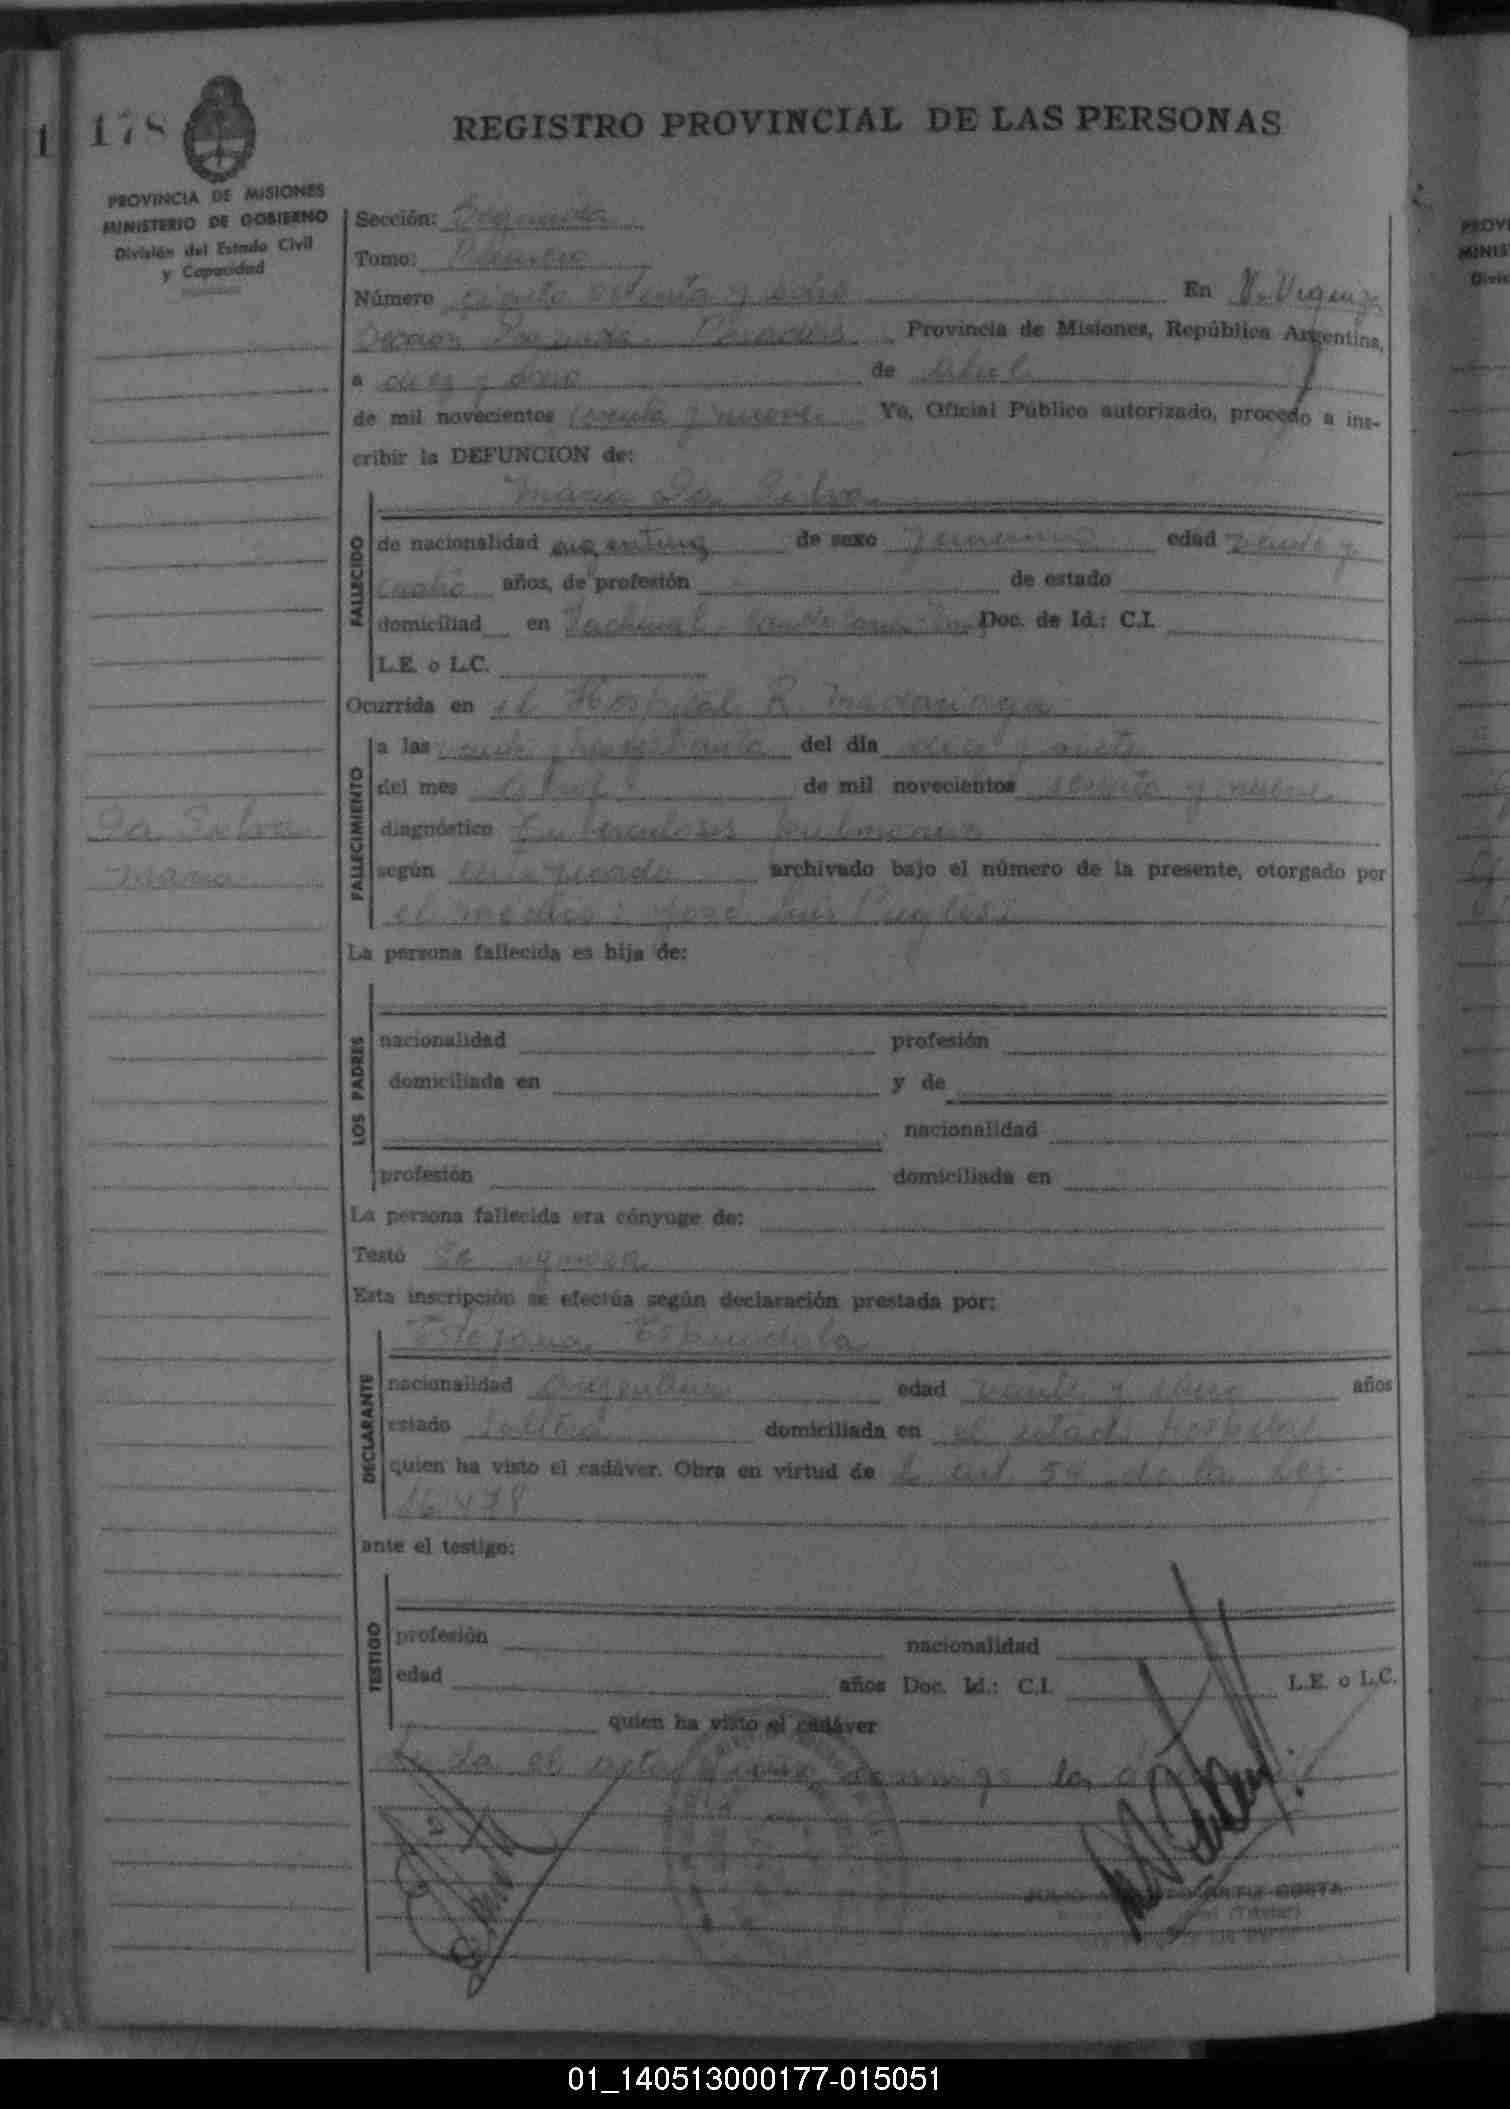 178
REGISTRO PROVINCIAL DE LAS PERSONAS
PROVINCIA DE MISIONES
MINISTERIO DE GOBIERNO
División del Estado Civil
y Capacidad
Sección: Segunda
Tomo: Primero
Número ciento setenta y ocho En V. Urquiza
Seccion Segunda. Posadas. Provincia de Misiones, República Argentina,
a diez y ocho de abril
de mil novecientos sesenta y nueve Yo, Oficial Público autorizado, procedo a ins-
cribir la DEFUNCION de:
Maria Da Silva
FALLECIDO
de nacionalidad argentina de sexo femenino edad veinte y
cuatro años, de profesión de estado
domiciliad en Doc. de Id.: C.I.
L.E. o L.C.
Ocurrida en el Hospital R. Madariaga
FALLECIMIENTO
a las del día diez y siete
del mes abril de mil novecientos sesenta y nueve
Da Silva
Maria
diagnóstico Tuberculosis pulmonar
según certificado archivado bajo el número de la presente, otorgado por
el medico: José Luis Puglesi
La persona fallecida es hija de:
LOS PADRES
nacionalidad profesión
domiciliada en y de
nacionalidad
profesión domiciliada en
La persona fallecida era cónyuge de:
Testó Se ignora
Esta inscripción se efectúa según declaración prestada por:
DECLARANTE
Estefana Espindola
nacionalidad argentina edad veinte y ocho años
estado soltera domiciliada en el citado hospital
quien ha visto el cadáver. Obra en virtud de l art. 54 de la Ley
16.478
ante el testigo:
TESTIGO
profesión nacionalidad
edad años Doc. Id.: C.I. L.E. o L.C.
quien ha visto el cadáver
Leida el acta, firma conmigo la
JULIO ORTIZ COSTA
01_140513000177-015051